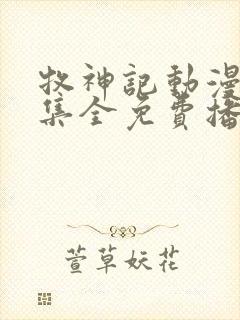 牧神記動漫
集全免費播
萱草妖花